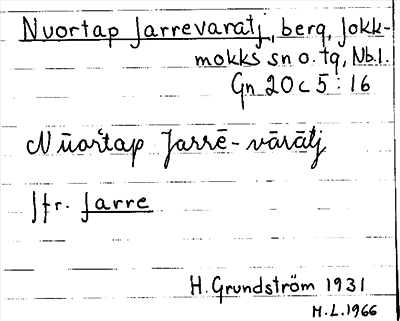 Nuortap Jarrevaratj, berg, Jokk-
mokks sn o. tg, Nb.l.
Gn 20 c 5 : 16
Nūortap Jarrē-vārātj
Jfr. Jarre
H. Grundström 1931
H.L. 1966